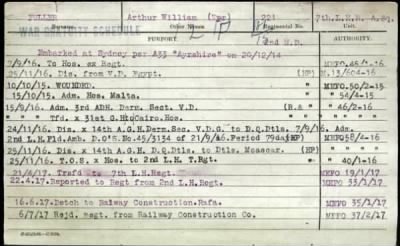 FULLER Arthur William (Tpr) 221 7th.L.H.R. A.Sq.
WAR GRATUITY SCHEDULE
Other Names Regimental No.
2nd M.D.
PURPORT. AUTHORITY.
Embarked at Sydney per A33 "Ayrshire" on 20/12/14
7/9/16. To Hos. ex Regt. MEFO.46/1-16
25/11/16. Dis. from V.D. Egypt. (HP) M.13/604-16
10/10/15. WOUNDED. MEFO.50/2-15
15/10/15. Adm. Hos. Malta. " 54/4-15
15/9/16. Adm. 3rd ADH. Derm. Sect. V.D. (B.& " 46/2-16
" " Tfd. x 31st G.HtoCairo.Hos. " "
24/11/16. Dis. x 14th A.G.H.Derm.Sec. V.D.G. to D.Q.Dtls. 7/9/16. Adm.
2nd L.H.Fld.Amb. D.O's.No.45/3134 of 21/9/46.Period 79days(HP) MEFO58/4-16
25/11/16. Dis. x 14th A.G.H. D.Q.Dtls. to Dtls. Moascar. (HP) " "
25/11/16. T.O.S. x Hos. to 2nd L.H T.Rgt. " 40/1-16
21.4/17. Trsfd to 7th L.H.Regt. MEFO 19/1/17
22.4.17. Reported to Regt from 2nd L.H.Regt. MEFO 33/1/17
16.6.17. Detch to Railway Construction.Rafa. MEFO 35/1/17
6/7/17 Rejd. Regt. from Railway Construction Co. MEFO 37/2/17